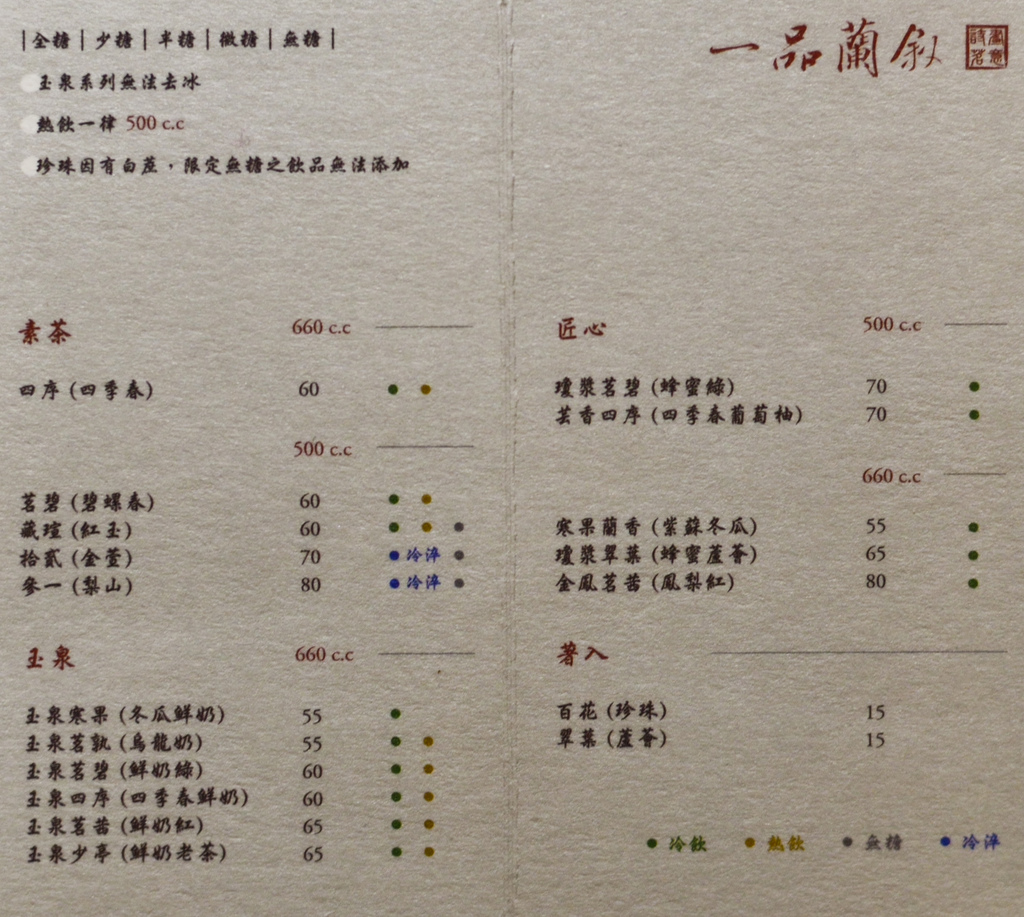 |全糖|少糖|半糖|微糖|無糖|
玉泉系列無法去冰
熱飲一律 500 c.c
珍珠因有白蔗，限定無糖之飲品無法添加
素茶 660 c.c
四序 (四季春) 60
500 c.c
茗碧 (碧螺春) 60
藏瑄 (紅玉) 60
拾貳 (金萱) 70 冷淬
參一 (梨山) 80 冷淬
玉泉 660 c.c
玉泉寒果 (冬瓜鮮奶) 55
玉泉茗孰 (烏龍奶) 55
玉泉茗碧 (鮮奶綠) 60
玉泉四序 (四季春鮮奶) 60
玉泉茗茜 (鮮奶紅) 65
玉泉少亭 (鮮奶老茶) 65
一品蘭敘
匠心 500 c.c
瓊漿茗碧 (蜂蜜綠) 70
芸香四序 (四季春葡萄柚) 70
660 c.c
寒果蘭香 (紫蘇冬瓜) 55
瓊漿翠葉 (蜂蜜蘆薈) 65
金鳳茗茜 (鳳梨紅) 80
著入
百花 (珍珠) 15
翠葉 (蘆薈) 15
冷飲 熱飲 無糖 冷淬